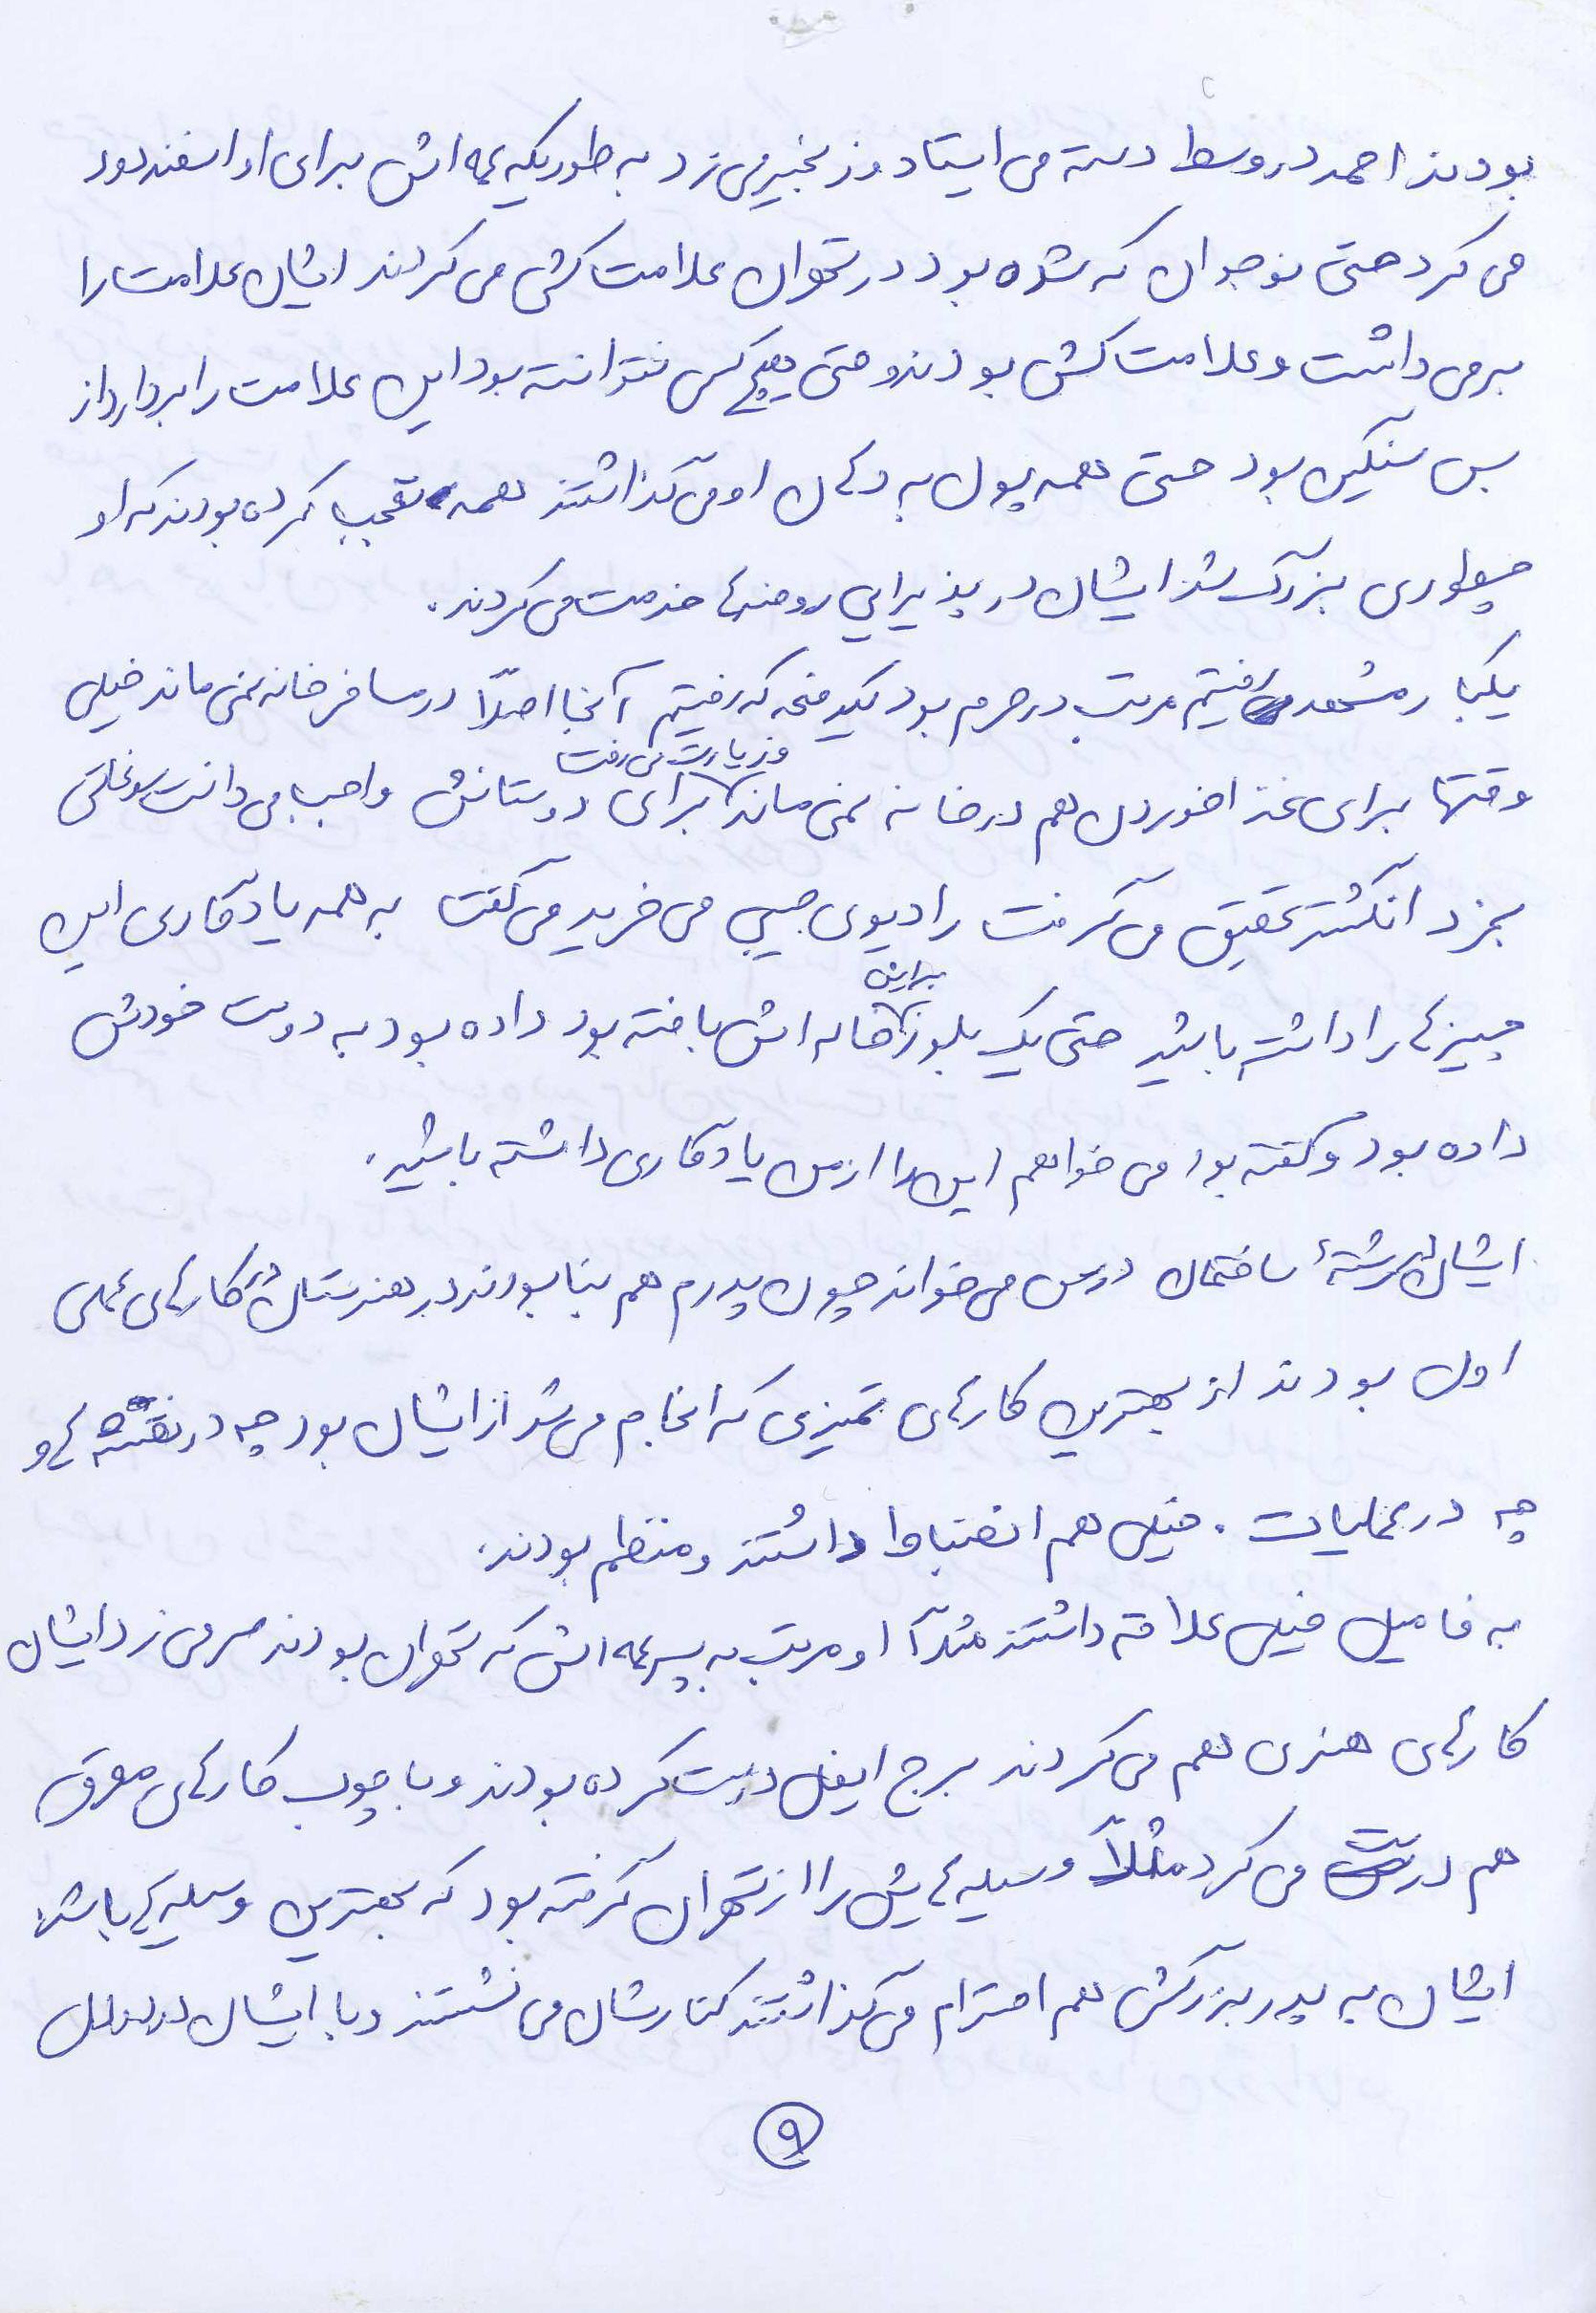 بودند احمد در وسط دسته می ایستاد و زنجیر می زد به طوریکه عمه اش برای او اسفند دود
می کرد حتی نوجوان که شده بود در تهران علامت کشی می کردند ایشان علامت را
برمی داشت و علامت کش بودند و حتی هیچ کس نتوانسته بود این علامت را بردارد از
بس سنگین بود حتی همه پول به دهان او می گذاشتند همه تعجب کرده بودند که او
چطوری بزرگ شد ایشان در پذیرایی روضه ها خدمت می کردند.
یکبار مشهد رفتیم مرتب در حرم بود یکدفعه که رفتیم آنجا اصلاً در مسافرخانه نمی ماند خیلی
وقتها برای غذا خوردن هم در خانه نمی ماند و زیارت می رفت برای دوستانش واجب می دانست سوغاتی
بخرد انگشتر عقیق می گرفت رادیوی جیبی می خرید می گفت به همه یادگاری این
چیزها را داشته باشید حتی یک بلوز خاله اش برایش بافته بود داده بود به دوست خودش
داده بود و گفته بود می خواهم این را از من یادگاری داشته باشید.
ایشان در رشتهٔ ساختمان درس می خواند چون پدرم هم بنا بودند در هنرستان در کارهای عملی
اول بودند از بهترین کارهای تمیزی که انجام می شد از ایشان بود چه در نقشه ها و
چه در عملیات. خیلی هم انضباط داشتند و منظم بودند.
به فامیل خیلی علاقه داشتند مثلاً او مرتب به پسر عمه اش که تهران بودند سر می زد ایشان
کارهای هنری هم می کردند برج ایفل درست کرده بودند و با چوب کارهای معرق
هم درست می کرد مثلاً وسیله هایش را از تهران گرفته بود که بهترین وسیله ها باشد.
ایشان به پدربزرگش هم احترام می گذاشتند کنارشان می نشستند و با ایشان درددل
۹